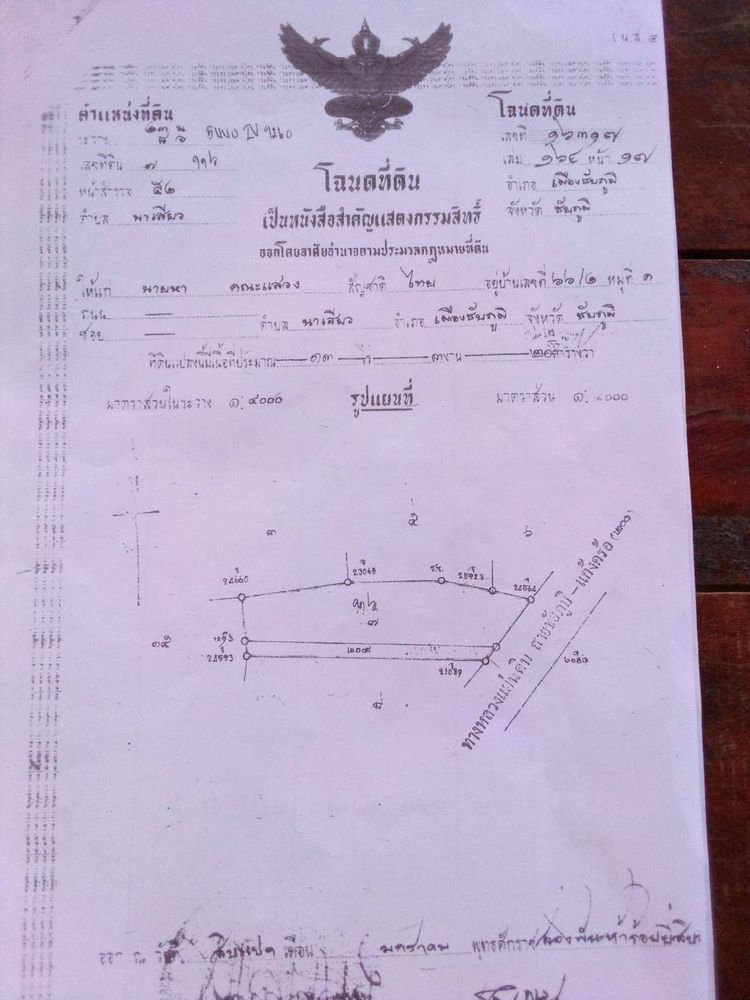 น.ส. ๔
ตำแหน่งที่ดิน
โฉนดที่ดิน
ระวาง
เลขที่ ๑๖๓๑๗
เลขที่ดิน ๗
เล่ม ๑๖๔ หน้า ๑๗
หน้าสำรวจ ๕๒
อำเภอ เมืองชัยภูมิ
ตำบล นาเสียว
จังหวัด ชัยภูมิ
โฉนดที่ดิน
เป็นหนังสือสำคัญแสดงกรรมสิทธิ์
ออกโดยอาศัยอำนาจตามประมวลกฎหมายที่ดิน
ให้แก่ นายหา คณะแสวง สัญชาติ ไทย อยู่บ้านเลขที่ ๖๖/๒ หมู่ที่ ๑
ถนน —
ซอย — ตำบล นาเสียว อำเภอ เมืองชัยภูมิ จังหวัด ชัยภูมิ
ที่ดินแปลงนี้มีเนื้อที่ประมาณ ๑๓ ไร่ ๓ งาน ๒๐ ตารางวา
มาตราส่วนในระวาง ๑:๔๐๐๐
รูปแผนที่
มาตราส่วน ๑: ๔๐๐๐
๓
๕
๖
24660
23068
ร.ร.
25923
24564
๗
๑๕
24593
๒๐๐๙
21089
๘
ทางหลวงแผ่นดิน สายชัยภูมิ-แก้งคร้อ (๒๐๑)
6089
ณ วันที่ สิบแปด เดือน มกราคม พุทธศักราช สองพันห้าร้อยยี่สิบ